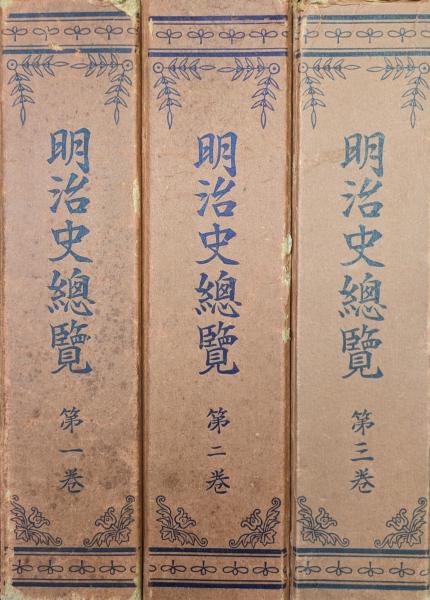 明治史總覽
第一巻
明治史總覽
第二巻
明治史總覽
第三巻